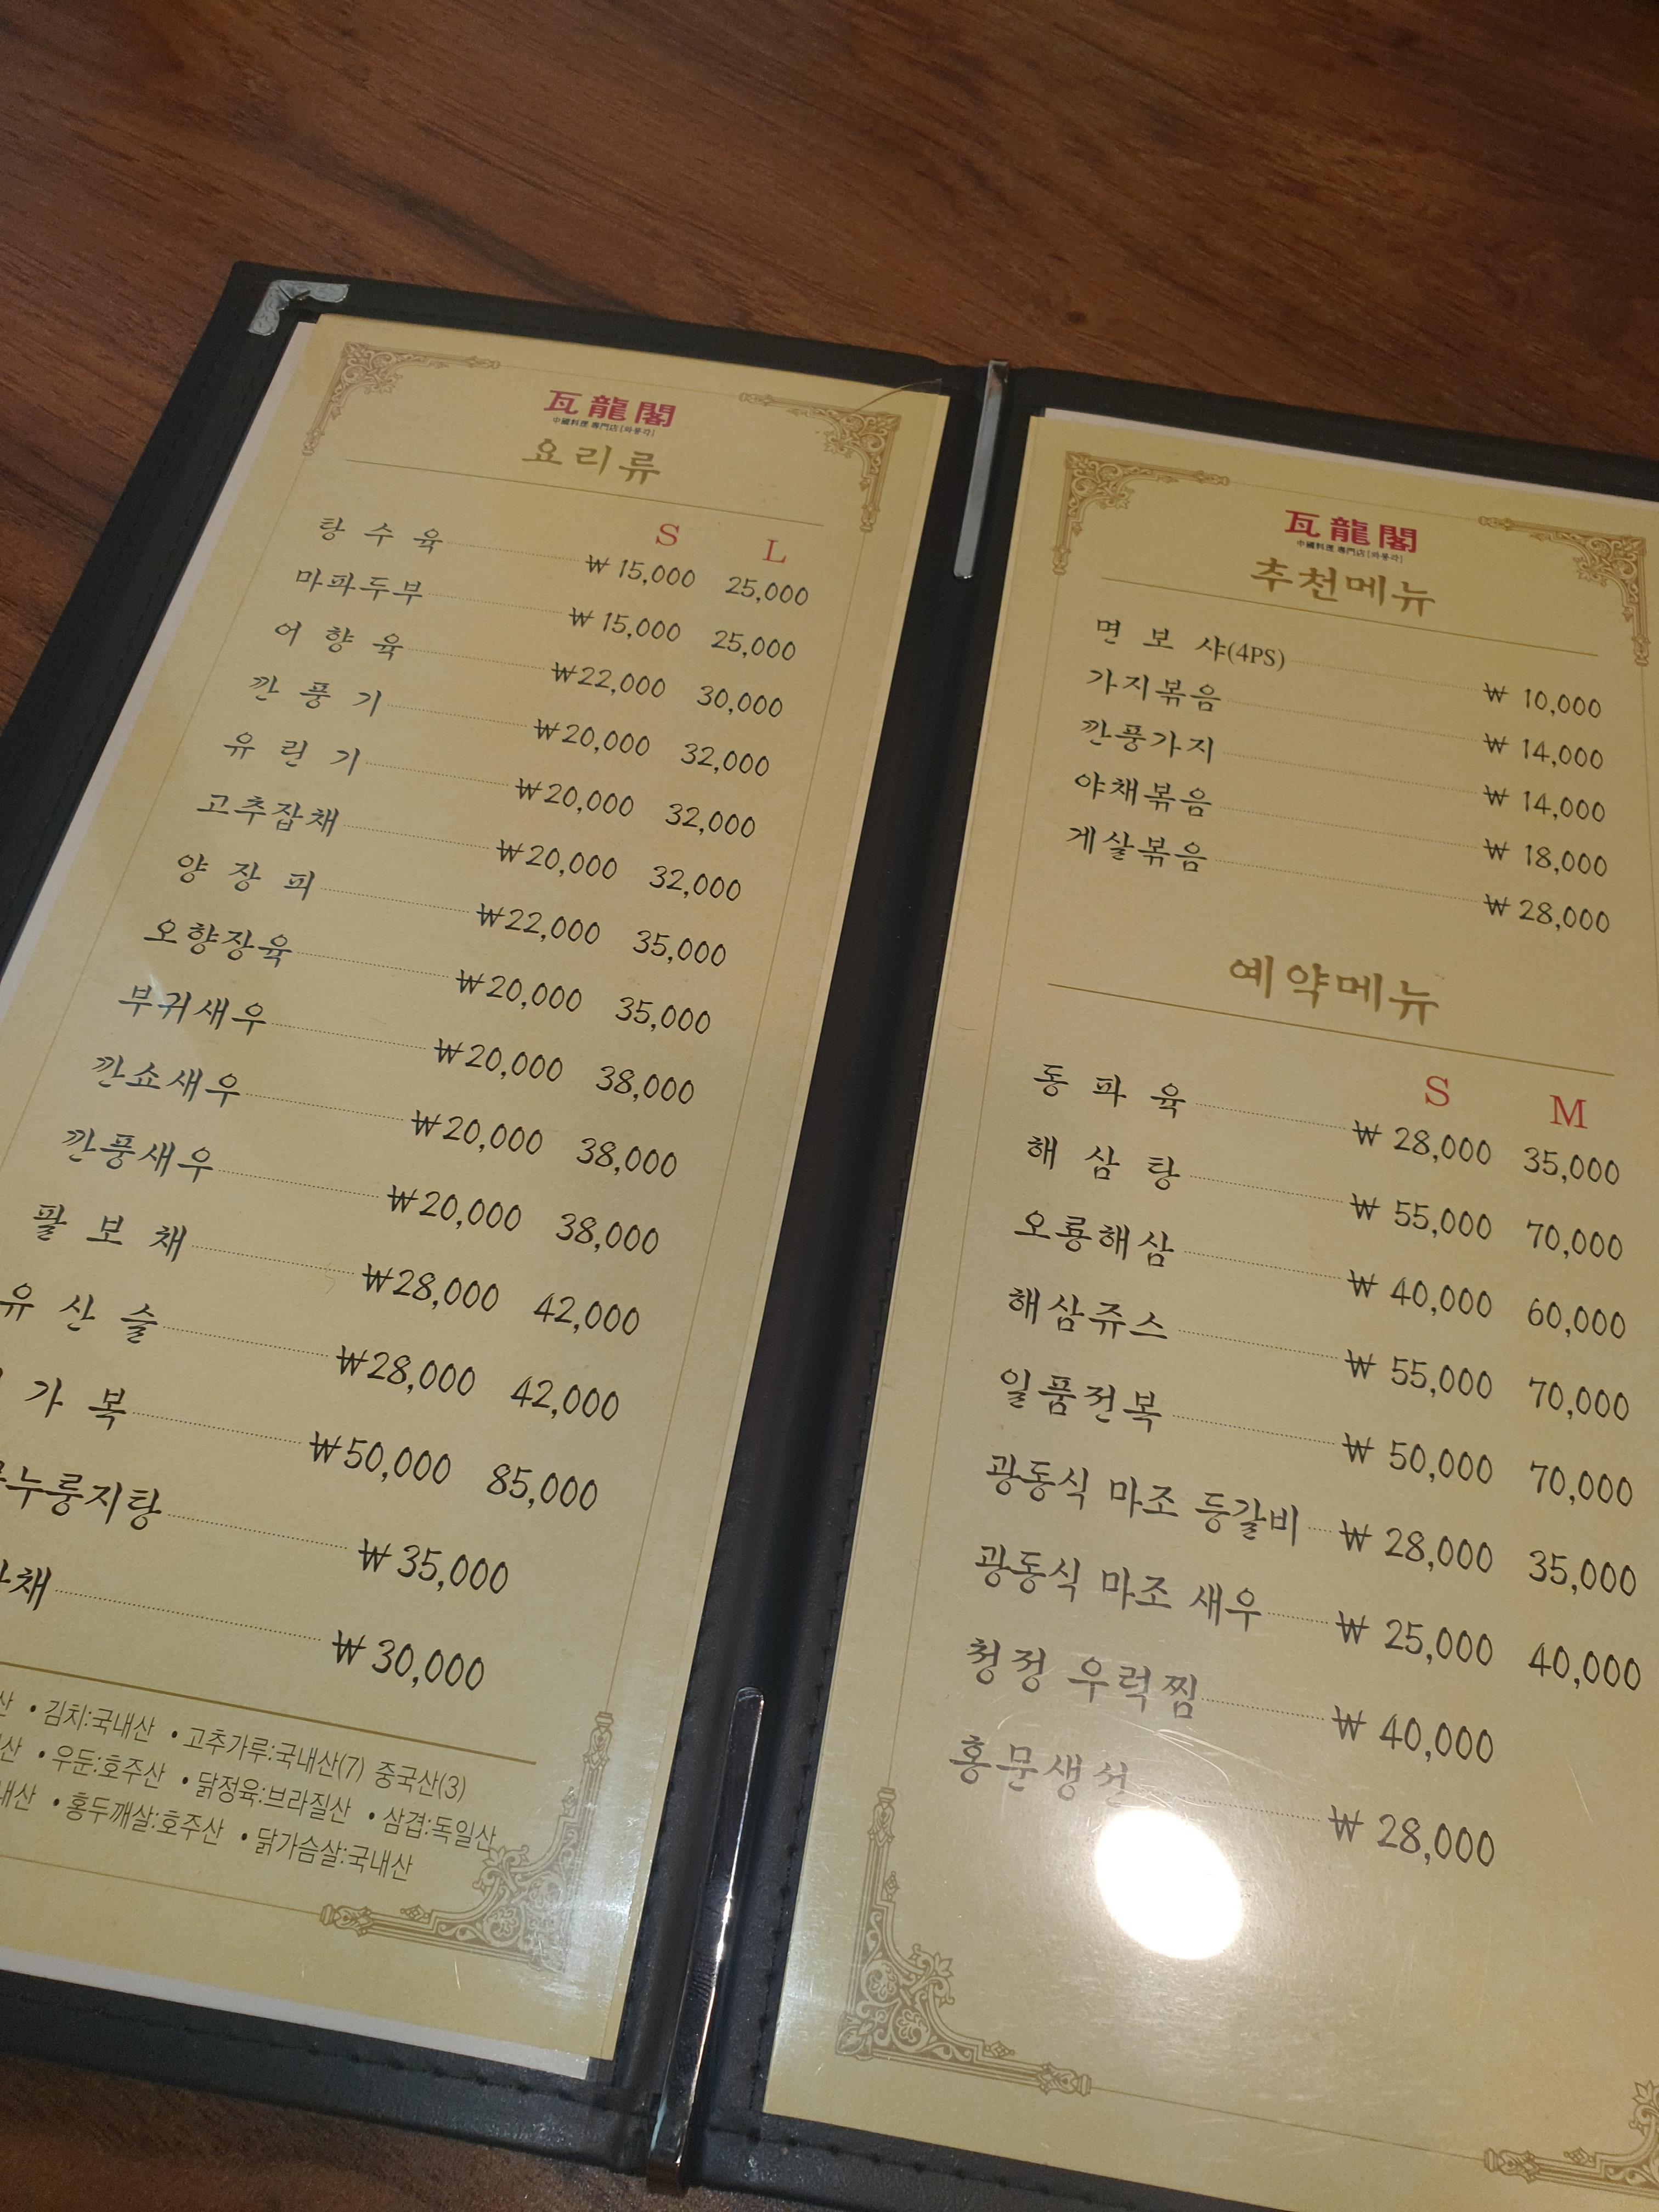 瓦龍閣
中國料理 專門店 [와룡각]
요리류
S L
탕 수 육 ₩ 15,000 25,000
마파두부 ₩ 15,000 25,000
어 향 육 ₩22,000 30,000
깐 풍 기 ₩20,000 32,000
유 린 기 ₩20,000 32,000
고추잡채 ₩20,000 32,000
양 장 피 ₩22,000 35,000
오향장육 ₩20,000 35,000
부귀새우 ₩20,000 38,000
깐쇼새우 ₩20,000 38,000
깐풍새우 ₩20,000 38,000
팔 보 채 ₩28,000 42,000
유 산 슬 ₩28,000 42,000
가 복 ₩50,000 85,000
누룽지탕 ₩ 35,000
채 ₩ 30,000
산 • 김치:국내산 • 고추가루:국내산(7) 중국산(3)
산 • 우둔:호주산 • 닭정육:브라질산 • 삼겹:독일산
내산 • 홍두깨살:호주산 • 닭가슴살:국내산
瓦龍閣
中國料理 專門店 [와룡각]
추천메뉴
면 보 샤(4PS) ₩ 10,000
가지볶음 ₩ 14,000
깐풍가지 ₩ 14,000
야채볶음 ₩ 18,000
게살볶음 ₩ 28,000
예약메뉴
S M
동 파 육 ₩ 28,000 35,000
해 삼 탕 ₩ 55,000 70,000
오룡해삼 ₩ 40,000 60,000
해삼쥬스 ₩ 55,000 70,000
일품전복 ₩ 50,000 70,000
광동식 마조 등갈비 ₩ 28,000 35,000
광동식 마조 새우 ₩ 25,000 40,000
청정 우럭찜 ₩ 40,000
홍문생선 ₩ 28,000